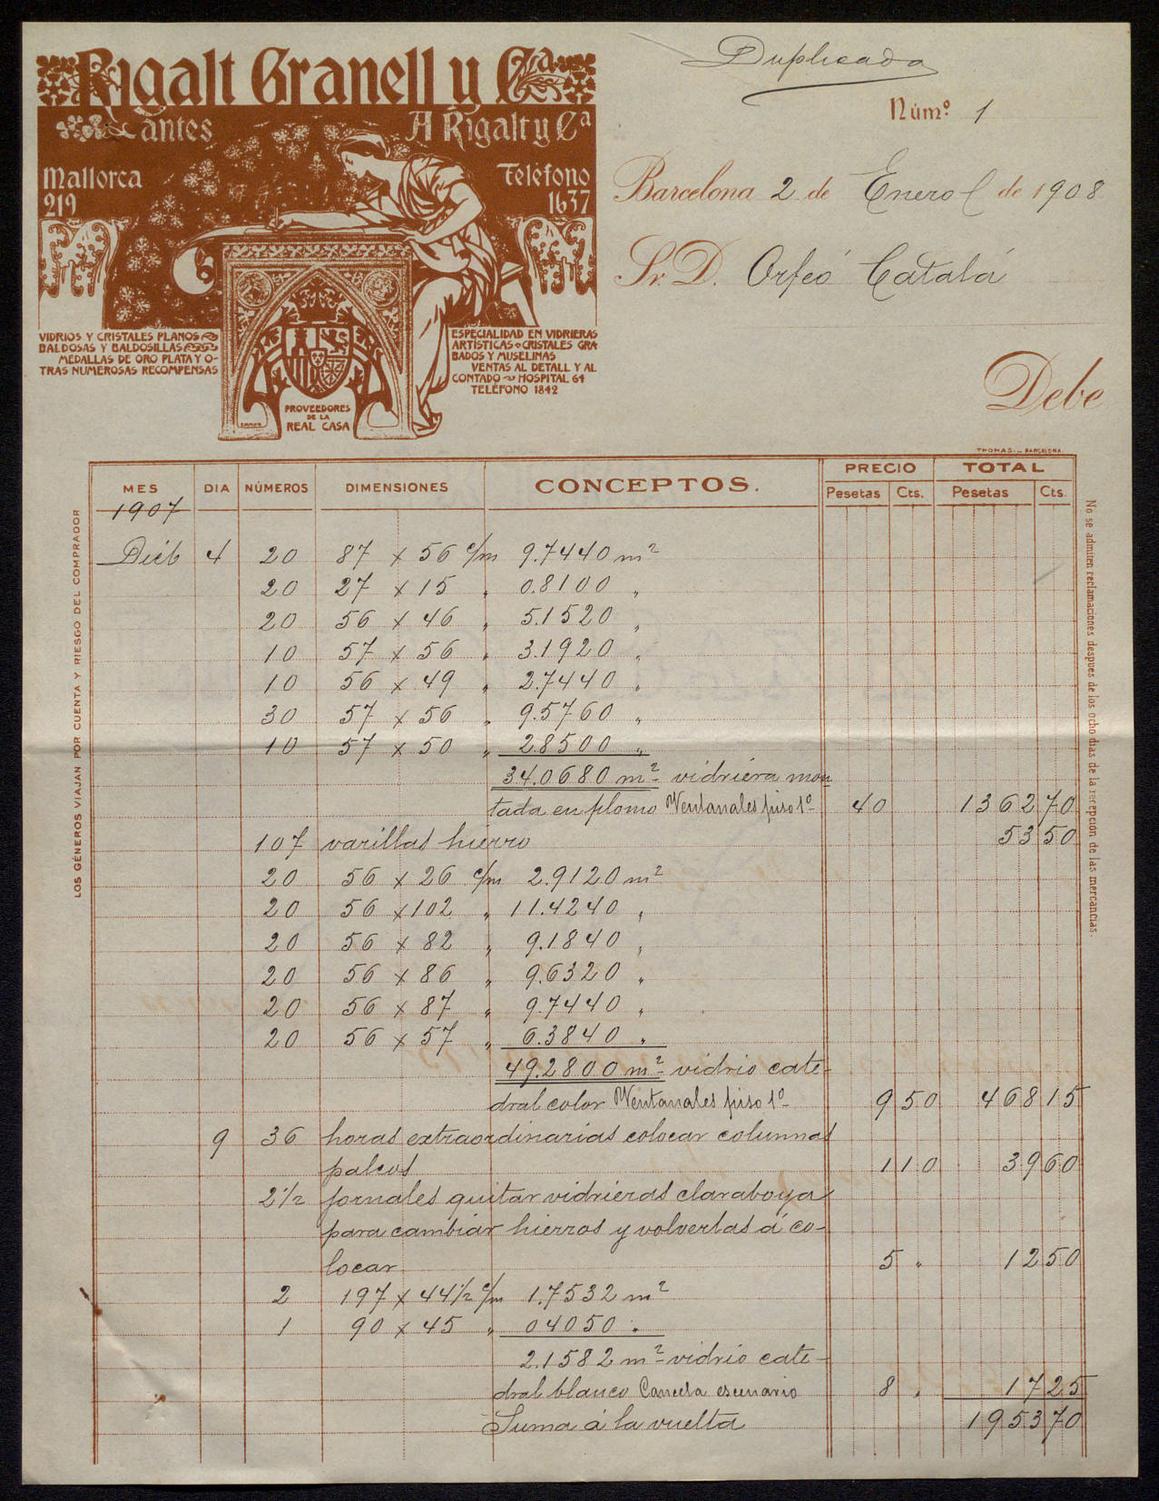 Rigalt Granell y Cª
antes A Rigalt y Cª
Mallorca 219
Teléfono 1637
VIDRIOS Y CRISTALES PLANOS
BALDOSAS Y BALDOSILLAS
MEDALLAS DE ORO PLATA Y O-
TRAS NUMEROSAS RECOMPENSAS
PROVEEDORES
DE LA
REAL CASA
ESPECIALIDAD EN VIDRIERAS
ARTÍSTICAS CRISTALES GRA
BADOS Y MUSELINAS
VENTAS AL DETALL Y AL
CONTADO HOSPITAL 64
TELÉFONO 1842
Duplicada
Núm.º 1
Barcelona 2 de Enero de 1908
Sr. D. Orfeó Catalá
Debe
THOMAS.- BARCELONA.
MES DIA NÚMEROS DIMENSIONES CONCEPTOS. PRECIO TOTAL
Pesetas Cts. Pesetas Cts.
1907
Dicb 4 20 87 x 56 c/m 9.7440 m²
20 27 x 15 " 0.8100 "
20 56 x 46 " 5.1520 "
10 57 x 56 " 3.1920 "
10 56 x 49 " 2.7440 "
30 57 x 56 " 9.5760 "
10 57 x 50 " 2.8500 "
34.0680 m² vidriera mon
tada en plomo Ventanales piso 1º 40 1362 70
107 varillas hierro 53 50
20 56 x 26 c/m 2.9120 m²
20 56 x 102 " 11.4240 "
20 56 x 82 " 9.1840 "
20 56 x 86 " 9.6320 "
20 56 x 87 " 9.7440 "
20 56 x 57 " 6.3840 "
49.2800 m² vidrio cate-
dral color Ventanales piso 1º 9 50 468 15
9 36 horas extraordinarias colocar columnas
palcos 1 10 39 60
2 1/2 jornales quitar vidrieras claraboya
para cambiar hierros y volverlas á co-
locar 5 " 12 50
2 197 x 44 1/2 c/m 1.7532 m²
1 90 x 45 " 0 4050 "
2.1582 m² vidrio cate-
dral blanco Cancela escenario 8 " 17 25
Suma á la vuelta 1953 70
LOS GÉNEROS VIAJAN POR CUENTA Y RIESGO DEL COMPRADOR
No se admiten reclamaciones despues de los ocho dias de la recepción de las mercancias.